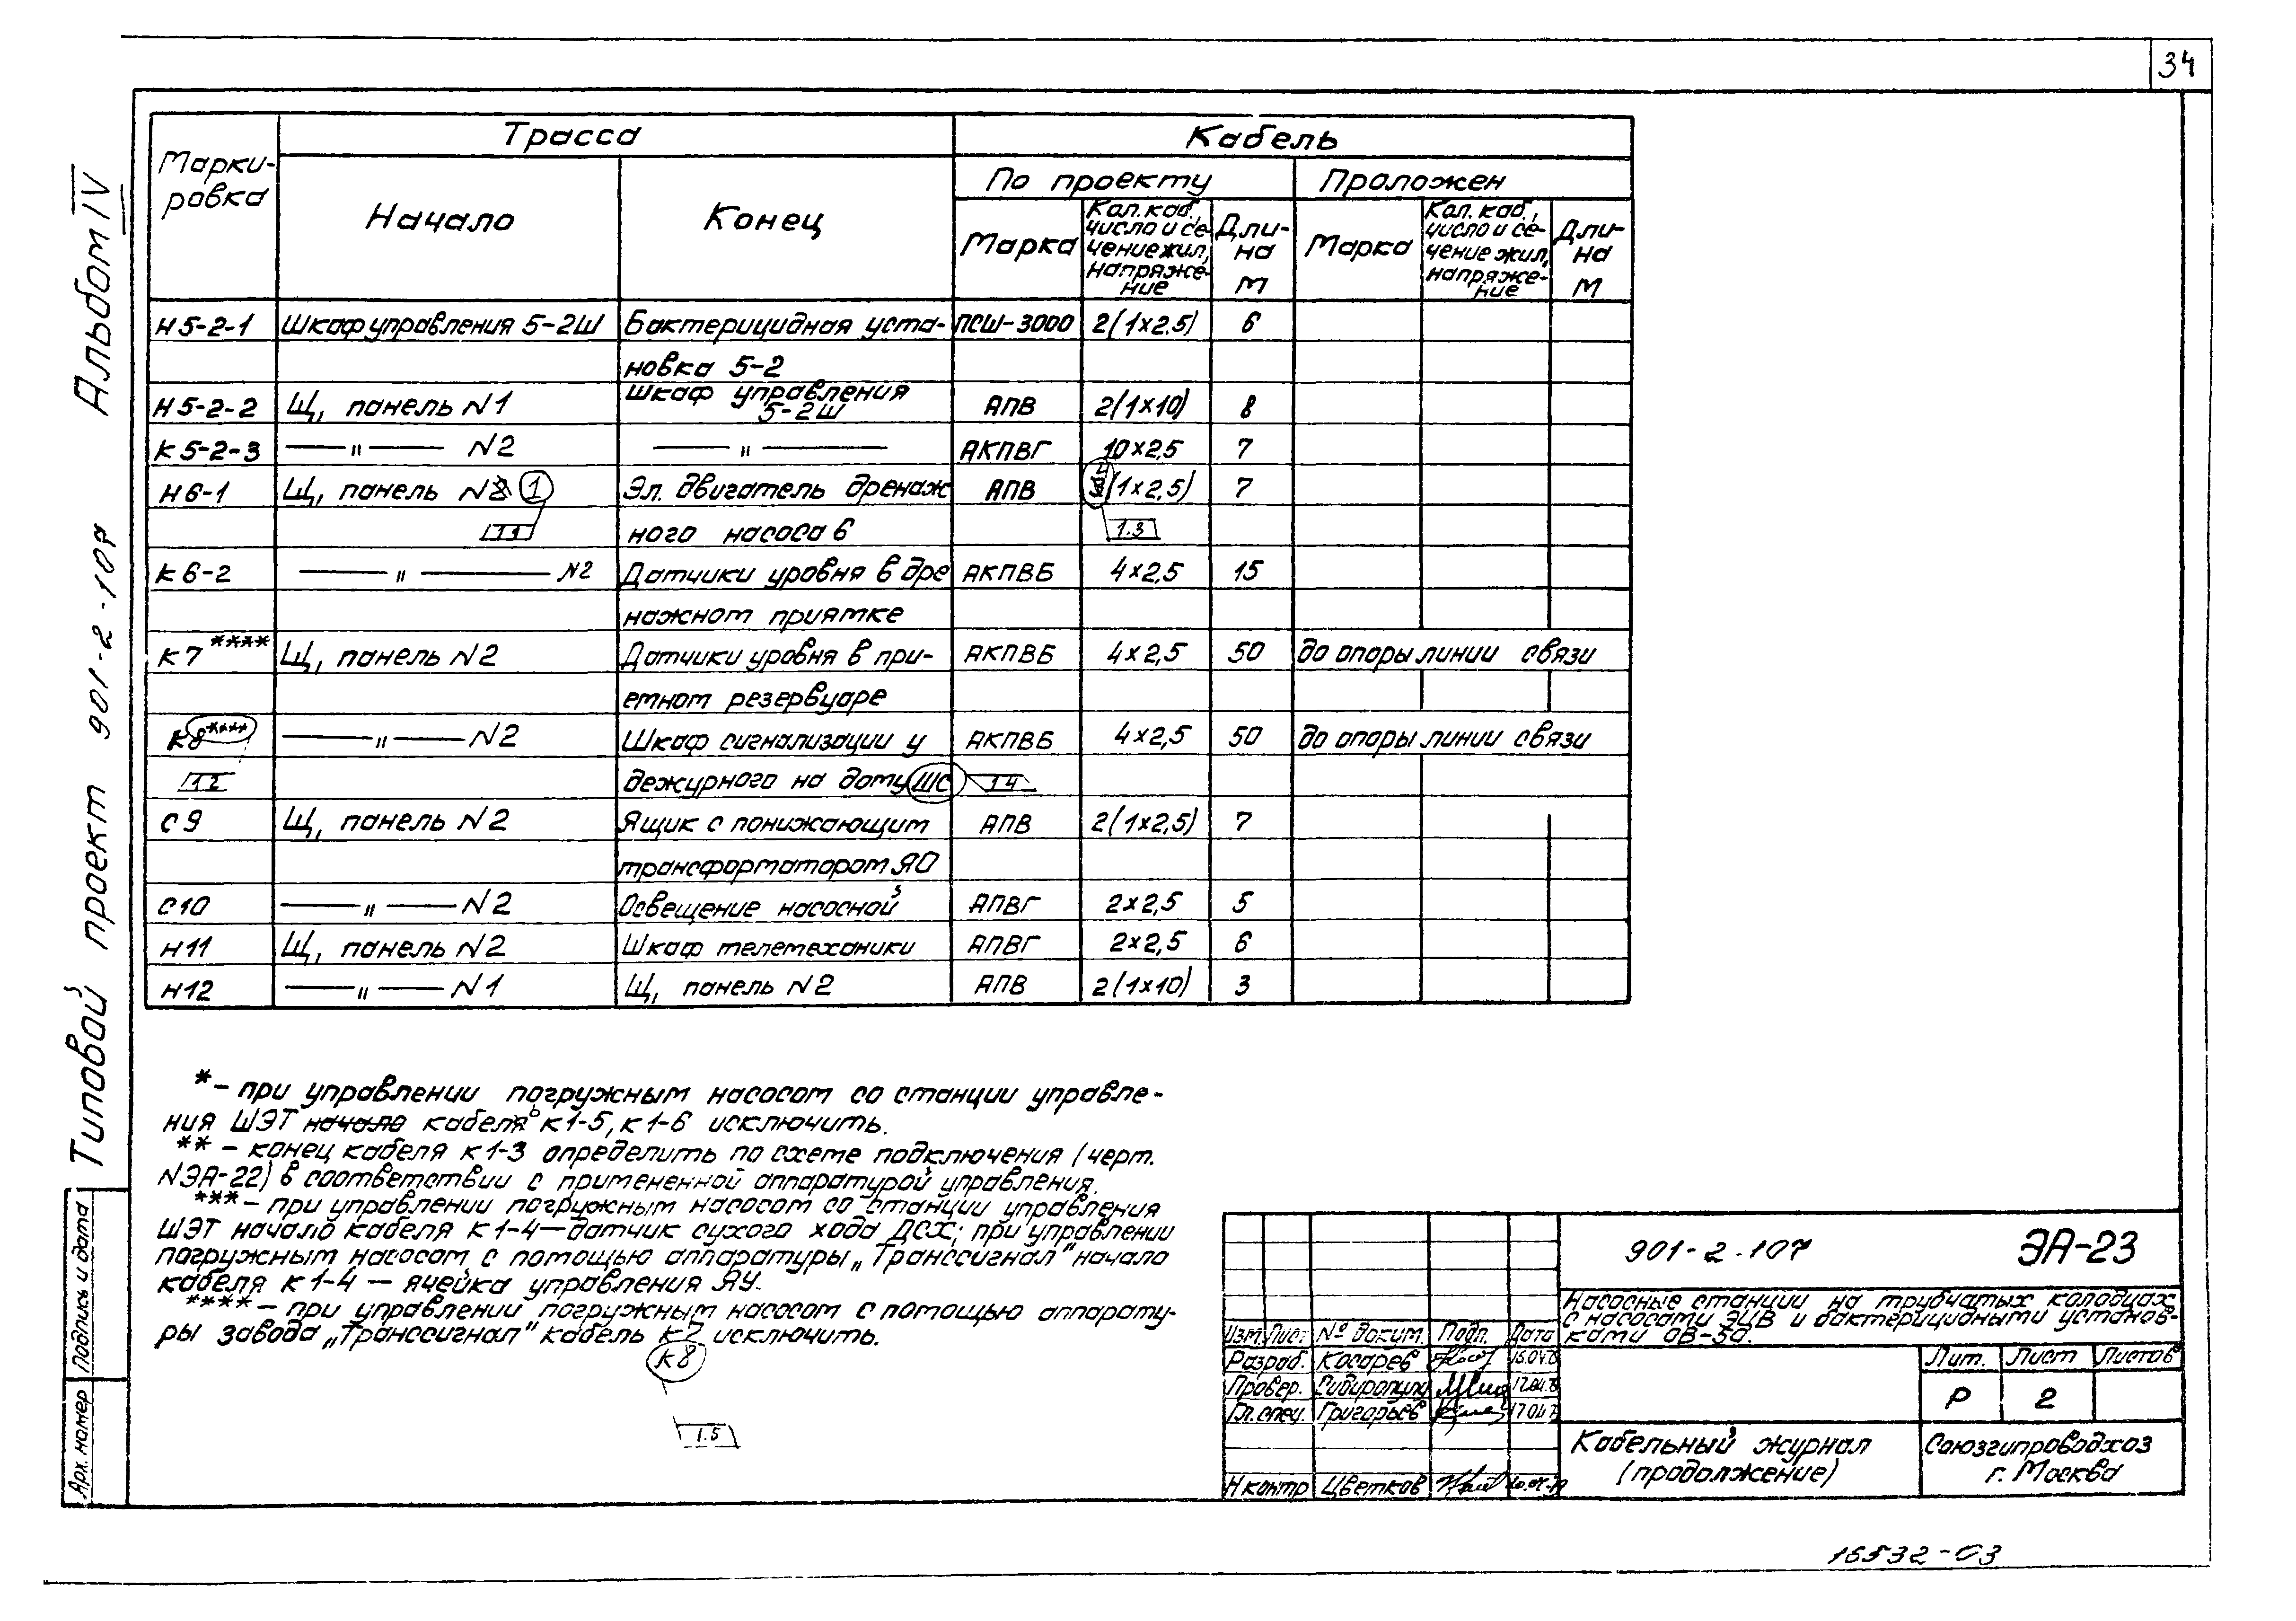 34
Альбом IV
Типовой проект 901-2-107
Подпись и дата
Арх. номер
Марки-
ровка
Трасса
Кабель
Начало
Конец
По проекту
Проложен
Марка
Кол. каб.,
число и се-
чение жил,
напряже-
ние
Дли-
на
м
Марка
Кол. каб.,
число и се-
чение жил,
напряже-
ние
Дли-
на
м
Н5-2-1 Шкаф управления 5-2Ш Бактерицидная уста- ПСШ-3000 2(1×2.5) 6
новка 5-2
Н5-2-2 Щ, панель N1 Шкаф управления 5-2Ш АПВ 2(1×10) 8
К5-2-3 —〃— N2 —〃— АКПВГ 10×2,5 7
Н6-1 Щ, панель N2 1 Эл. двигатель дренаж АПВ 4(1×2,5) 7
1.1 ного насоса 6 1.3
К6-2 —〃— N2 Датчики уровня в дре АКПВБ 4×2,5 15
нажном приямке
К7**** Щ, панель N2 Датчики уровня в при- АКПВБ 4×2,5 50 до опоры линии связи
емном резервуаре
К8**** —〃— N2 Шкаф сигнализации у АКПВБ 4×2,5 50 до опоры линии связи
1.2 дежурного на дому ШС 1.4
С9 Щ, панель N2 Ящик с понижающим АПВ 2(1×2,5) 7
трансформатором ЯО
С10 —〃— N2 Освещение насосной АПВГ 2×2,5 5
Н11 Щ, панель N2 Шкаф телемеханики АПВГ 2×2,5 6
Н12 —〃— N1 Щ, панель N2 АПВ 2(1×10) 3
* – при управлении погружным насосом со станции управле-
ния ШЭТ начало кабеля ь К1-5, К1-6 исключить.
** – конец кабеля К1-3 определить по схеме подключения (черт.
NЭА-22) в соответствии с примененной аппаратурой управления.
*** – при управлении погружным насосом со станции управления
ШЭТ начало кабеля К1-4 — датчик сухого хода ДСХ; при управлении
погружным насосом с помощью аппаратуры „Транссигнал" начало
кабеля К1-4 — ячейка управления ЯУ.
**** – при управлении погружным насосом с помощью аппарату-
ры завода „Транссигнал" кабель К7 исключить.
К8
1.5
901-2-107 ЭА-23
Насосные станции на трубчатых колодцах
с насосами ЭЦВ и бактерицидными установ-
ками ОВ-5а.
Изм. Лист № докум. Подп. Дата
Разраб. Косарев
Провер.
Гл. спец. Григорьев
Н контр Цветков
Лит. Лист Листов
Р 2
Кабельный журнал
(продолжение)
Союзгипроводхоз
г. Москва
16532-03